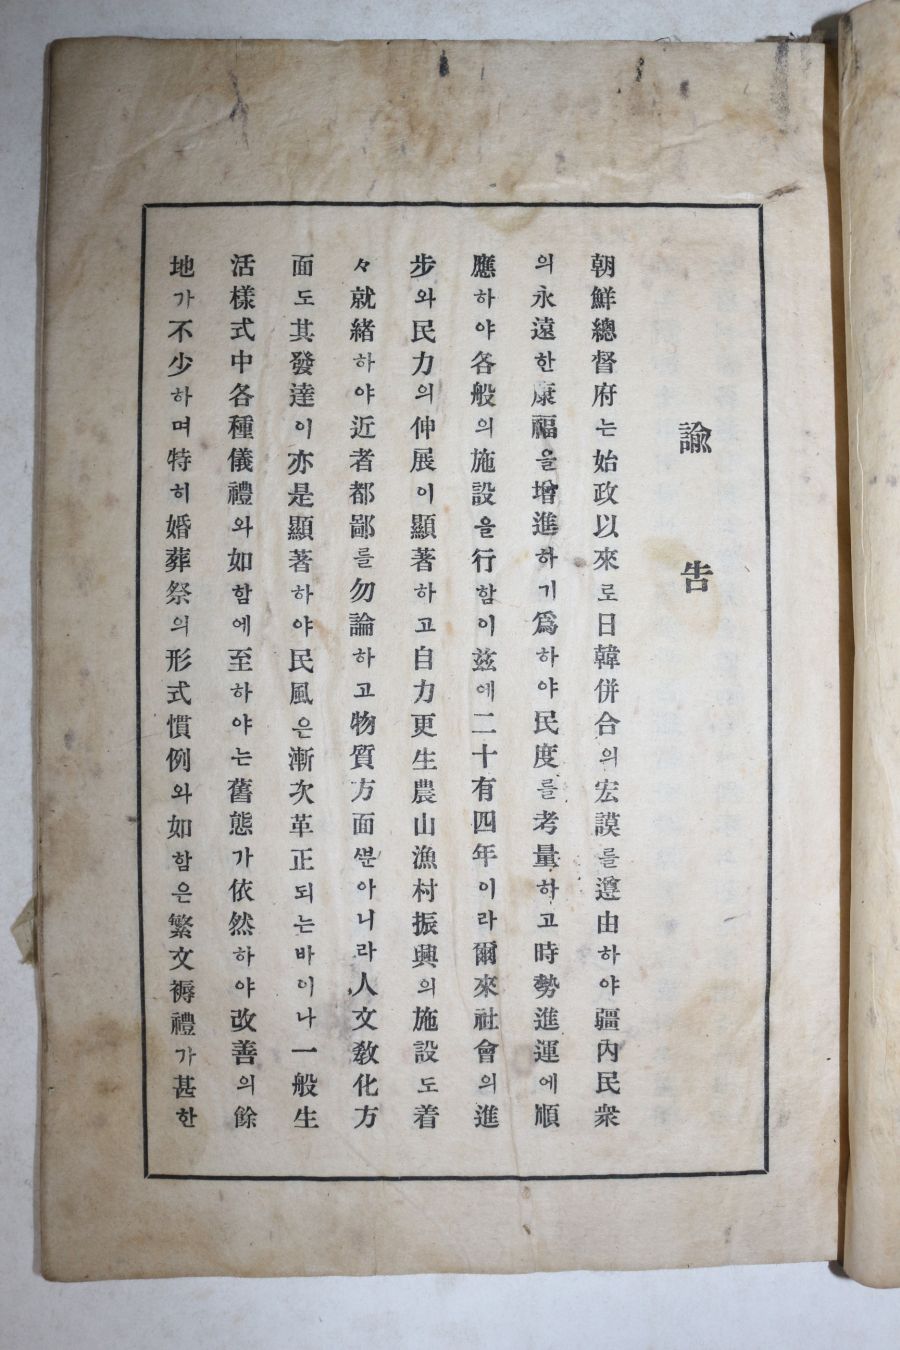 諭告
朝鮮總督府는始政以來로日韓併合의宏謨를遵由하야疆內民衆
의永遠한康福을增進하기爲하야民度를考量하고時勢進運에順
應하야各般의施設을行함이玆에二十有四年이라爾來社會의進
步와民力의伸展이顯著하고自力更生農山漁村振興의施設도着
々就緖하야近者都鄙를勿論하고物質方面ᄲᅮᆫ아니라人文敎化方
面도其發達이亦是顯著하야民風은漸次革正되는바이나一般生
活樣式中各種儀禮와如함에至하야는舊態가依然하야改善의餘
地가不少하며特히婚葬祭의形式慣例와如함은繁文褥禮가甚한